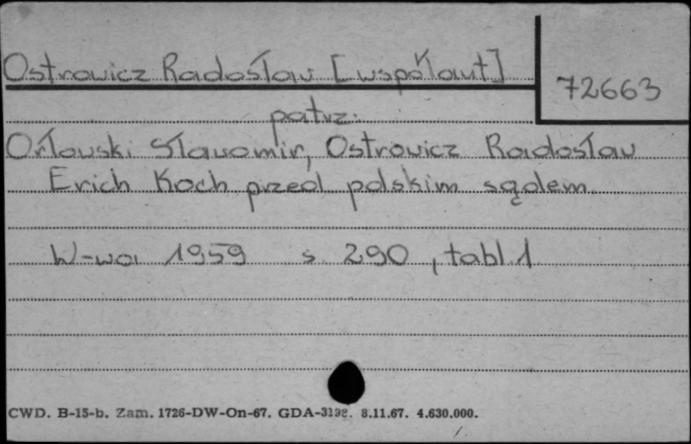 Ostrowicz Radosław [współaut]
72663
patrz:
Orłowski Sławomir, Ostrowicz Radosław
Erich Koch przed polskim sądem
W-wa 1959 s 290, tabl. 1
CWD. B-15-b. Zam. 1726-DW-On-67. GDA-3192. 8.11.67. 4.630.000.